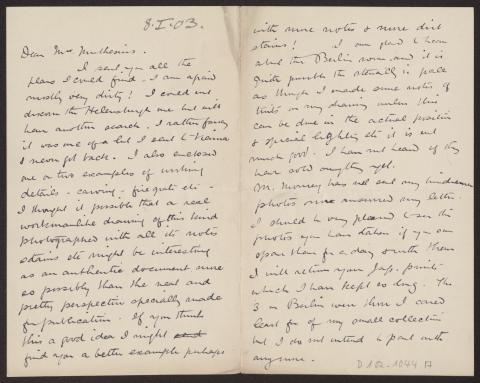 8.I.03.
Dear Mr Muthesius.
I sent you all the
plans I could find. I am afraid
mostly very dirty! I could not
discover the Helensburgh one but will
have another search. I rather fancy
it was one of a lot I sent to Vienna
I never got back. I also enclosed
one or two examples of working
details - carving - firegrate etc -
I thought it possible that a real
workmanlike drawing of this kind
photographed with all its notes
stains etc might be interesting
as an authentic document more
so possibly than the neat and
pretty perspective specially made
for publication. If you think
this a good idea I might send
find you a better example perhaps
with more notes & more dirt
stains! I am glad to hear
about the Berlin room and it is
quite possible the
as though I made some notes of
tints on my drawing unless this
can be done in the actual position
& special lighting etc it is not
much good. I have not heard if they
have sold anything yet.
Mr. Morney has not sent my
photos nor answered my letter.
I should be very pleased to see the
photos you have taken if you can
spare them for a day & with them
I will return your Jap. prints
which I have kept so long. The
3 in Berlin were those I cared
least for of my small collection
but I do not intend to part with
any more.
D 102-1044 A